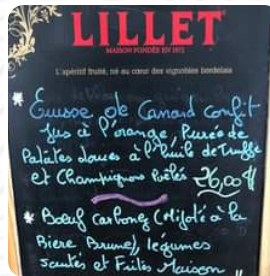 LILLET
MAISON FONDÉE EN 1872
L'apéritif fruité, né au cœur des vignobles bordelais
* Cuisse de Canard confit
Jus à l'orange, Purée de
Patates douces à l'huile de Truffe
et Champignons Poêlés 26,00€
* Bœuf Carbonade (Mijoté à la
Bière Brune), légumes
sautés et Frites Maison